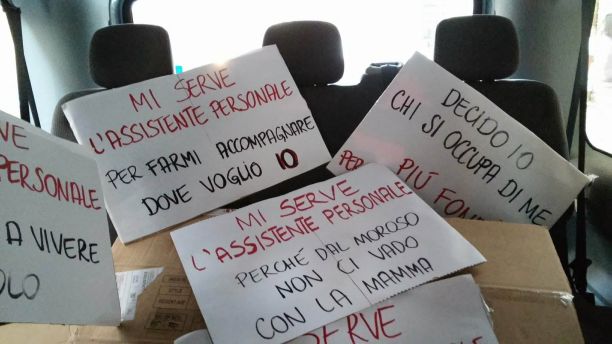 MI SERVE
L'ASSISTENTE PERSONALE
PER FARMI ACCOMPAGNARE
DOVE VOGLIO IO
DECIDO IO
CHI SI OCCUPA DI ME
PIÚ
PERSONALE
A VIVERE
MI SERVE
L'ASSISTENTE PERSONALE
PERCHÉ DAL MOROSO
NON CI VADO
CON LA MAMMA